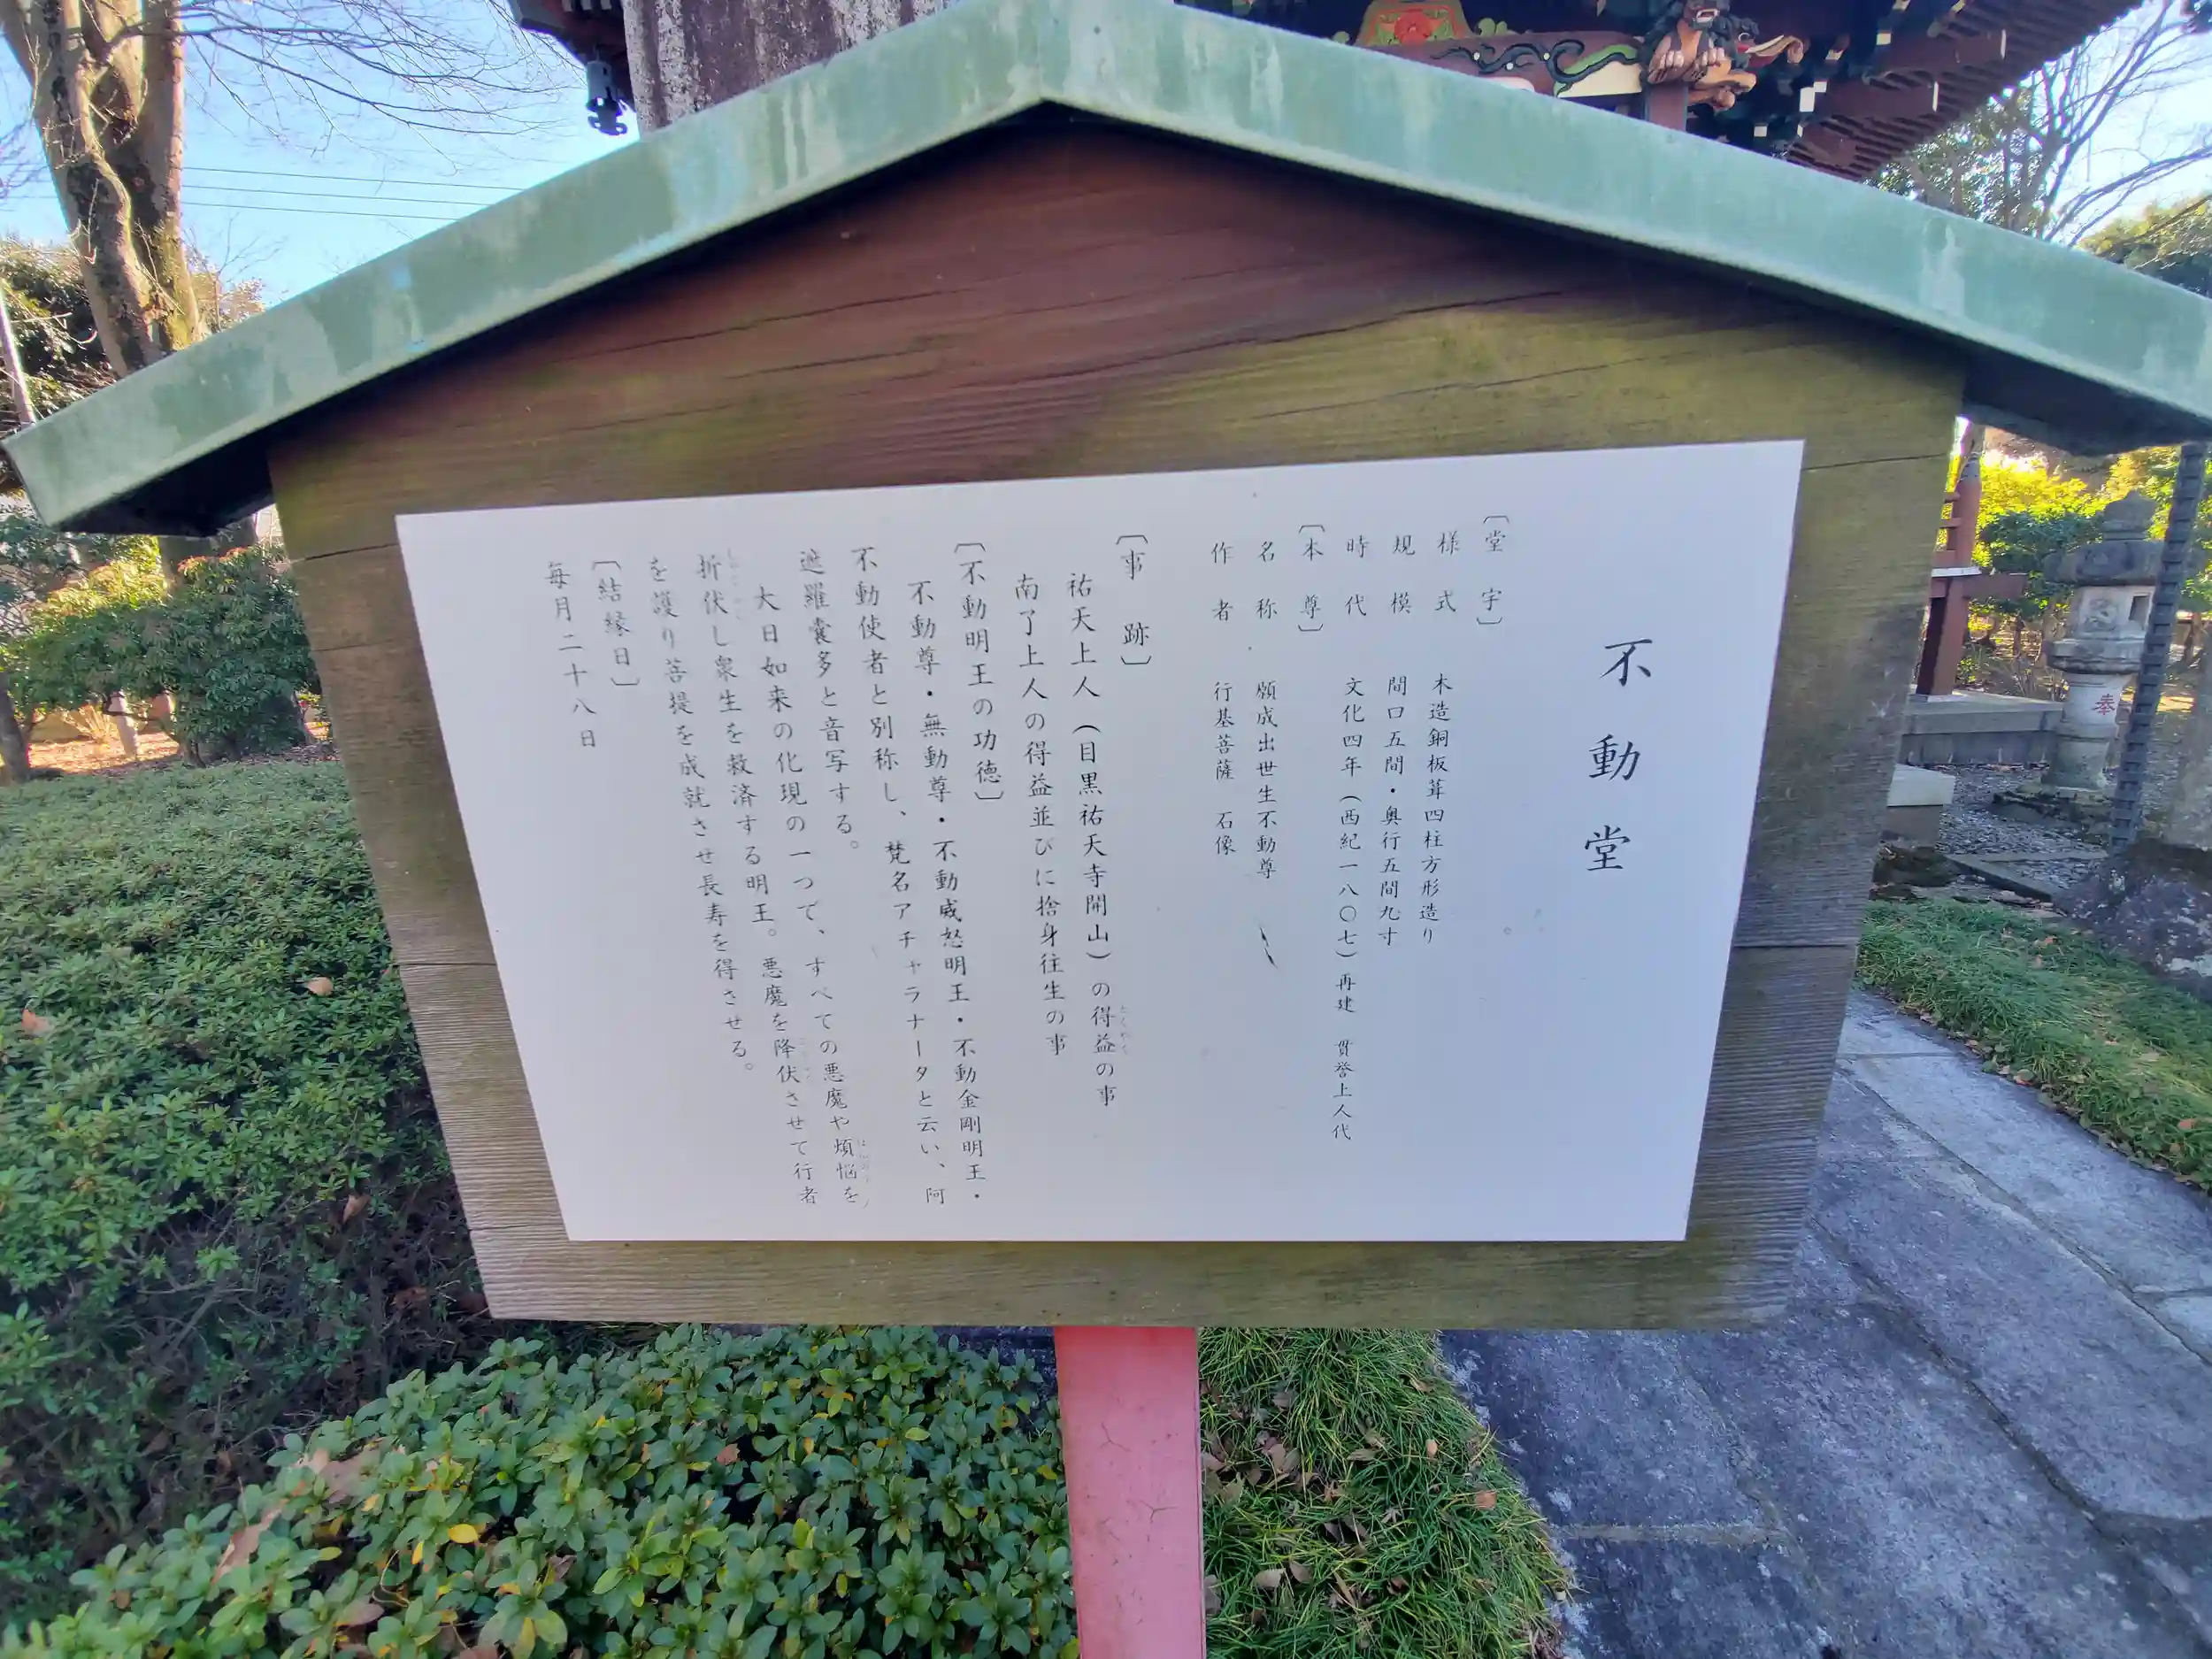 不動堂
〔堂宇〕
様式 木造銅板葺四柱方形造り
規模 間口五間・奥行五間九寸
時代 文化四年（西紀一八〇七）再建 貫誉上人代
〔本尊〕
名称 願成出世生不動尊
作者 行基菩薩 石像
〔事跡〕
祐天上人（目黒祐天寺開山）の得益の事
とくやく
南了上人の得益並びに捨身往生の事
〔不動明王の功徳〕
不動尊・無動尊・不動威怒明王・不動金剛明王・
不動使者と別称し、梵名アチャラナータと云い、阿
遮羅嚢多と音写する。
大日如来の化現の一つで、すべての悪魔や煩悩を
折伏し衆生を救済する明王。悪魔を降伏させて行者
を護り菩提を成就させ長寿を得させる。
〔結縁日〕
毎月二十八日
奉